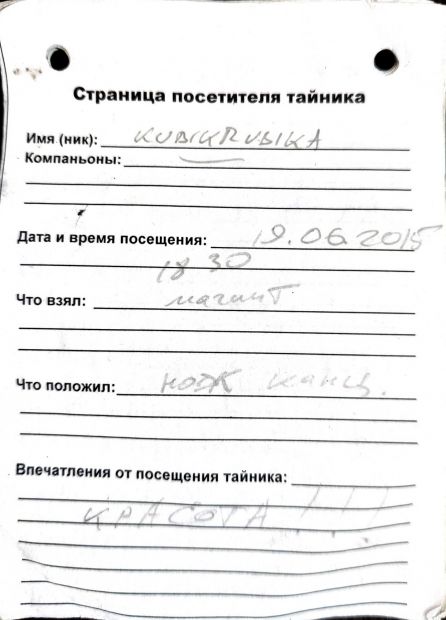 Страница посетителя тайника
Имя (ник): KUBIKRUBIKA
Компаньоны: —
Дата и время посещения: 19.06.2015
18 30
Что взял: магнит
Что положил: нож канц.
Впечатления от посещения тайника:
КРАСОТА!!!